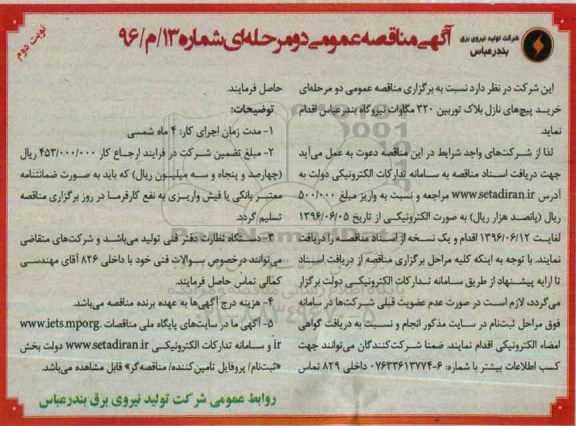 نوبت دوم
شرکت تولید نیروی برق
بندرعباس
آگهی مناقصه عمومی دو مرحله‌ای شماره ۱۳/م/۹۶
این شرکت در نظر دارد نسبت به برگزاری مناقصه عمومی دو مرحله‌ای
خرید پیچ‌های نازل بلاک توربین ۳۲۰ مگاوات نیروگاه بندرعباس اقدام
نماید.
لذا از شرکت‌های واجد شرایط در این مناقصه دعوت به عمل می‌آید
جهت دریافت اسناد مناقصه به سامانه تدارکات الکترونیکی دولت به
آدرس www.setadiran.ir مراجعه و نسبت به واریز مبلغ ۵۰۰/۰۰۰
ریال (پانصد هزار ریال) به صورت الکترونیکی از تاریخ ۱۳۹۶/۰۶/۰۵
لغایت ۱۳۹۶/۰۶/۱۲ اقدام و یک نسخه از اسناد مناقصه را دریافت
نمایند. با توجه به اینکه کلیه مراحل برگزاری مناقصه از دریافت اسناد
تا ارایه پیشنهاد از طریق سامانه تدارکات الکترونیکی دولت برگزار
می‌گردد، لازم است در صورت عدم عضویت قبلی شرکت‌ها در سامانه
فوق مراحل ثبت‌نام در سایت مذکور انجام و نسبت به دریافت گواهی
امضاء الکترونیکی اقدام نمایند. ضمنا شرکت‌کنندگان می‌توانند جهت
کسب اطلاعات بیشتر با شماره: ۶-۰۷۶۳۳۶۱۳۷۷۴ داخلی ۸۲۹ تماس
حاصل فرمایند.
توضیحات:
۱- مدت زمان اجرای کار: ۴ ماه شمسی
۲- مبلغ تضمین شرکت در فرایند ارجاع کار ۴۵۳/۰۰۰/۰۰۰ ریال
(چهارصد و پنجاه و سه میلیون ریال) که باید به صورت ضمانتنامه
معتبر بانکی یا فیش واریزی به نفع کارفرما در روز برگزاری مناقصه
تسلیم گردد.
۳- دستگاه نظارت دفتر فنی تولید می‌باشد و شرکت‌های متقاضی
می‌توانند درخصوص سوالات فنی خود با داخلی ۸۲۶ آقای مهندسی
کمالی تماس حاصل فرمایند.
۴- هزینه درج آگهی‌ها به عهده برنده مناقصه می‌باشد.
۵- آگهی ما در سایت‌های پایگاه ملی مناقصات www.iets.mporg.
ir و سامانه تدارکات الکترونیکی www.setadiran.ir دولت بخش
«ثبت‌نام/ پروفایل تامین‌کننده/ مناقصه‌گر» قابل مشاهده می‌باشد.
روابط عمومی شرکت تولید نیروی برق بندرعباس